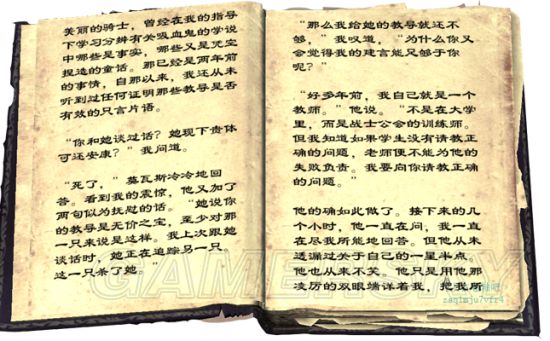 美丽的骑士，曾经在我的指导
下学习分辨有关吸血鬼的学说
中哪些是事实，哪些又是凭空
捏造的童话。那已经是两年前
的事情，自那以来，我还从未
听到过任何证明那些教导是否
有效的只言片语。
“你和她谈过话？她现下贵体
可还安康？”我问道。
“死了，”莫瓦斯冷冷地回
答。看到我的震惊，他又加了
两句似为抚慰的话。“她说你
的教导是无价之宝，至少对那
一只来说是这样。我上次跟她
谈话时，她正在追踪另一只，
这一只杀了她。”
“那么我给她的教导就还不
够，”我叹道，“为什么你又
会觉得我的建言能足够于你
呢？”
“好多年前，我自己就是一个
教师。”他说。“不是在大学
里，而是战士公会的训练师。
但我知道如果学生没有请教正
确的问题，老师便不能为他的
失败负责。我要向你请教正确
的问题。”
他的确如此做了。接下来的几
个小时，他一直在问，我一直
在尽我所能地回答。但他从未
透漏过关于自己的一星半点，
他也从来不笑。他只是用他那
凌厉的双眼端详着我，把我所
GAMERSKY
zaq1mju7vfr4